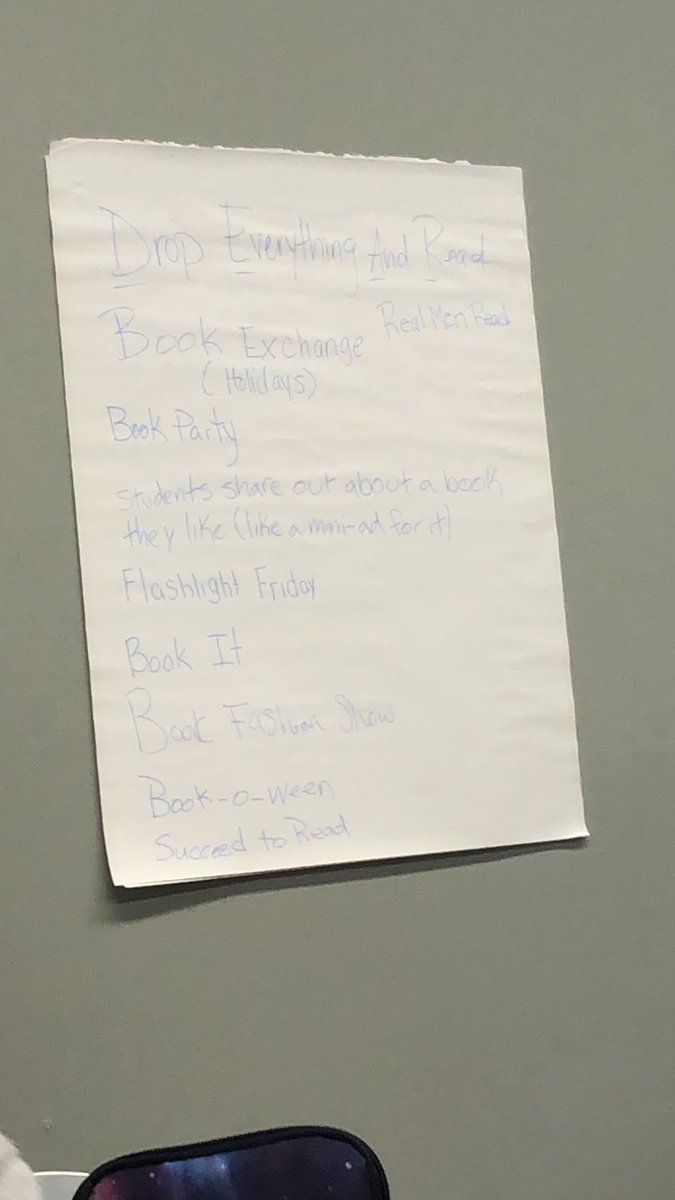 Drop Everything And Read
Real Men Read
Book Exchange
(Holidays)
Book Party
Students share out about a book
they like (like a mini-ad for it)
Flashlight Friday
Book It
Book Fashion Show
Book-o-ween
Succeed to Read